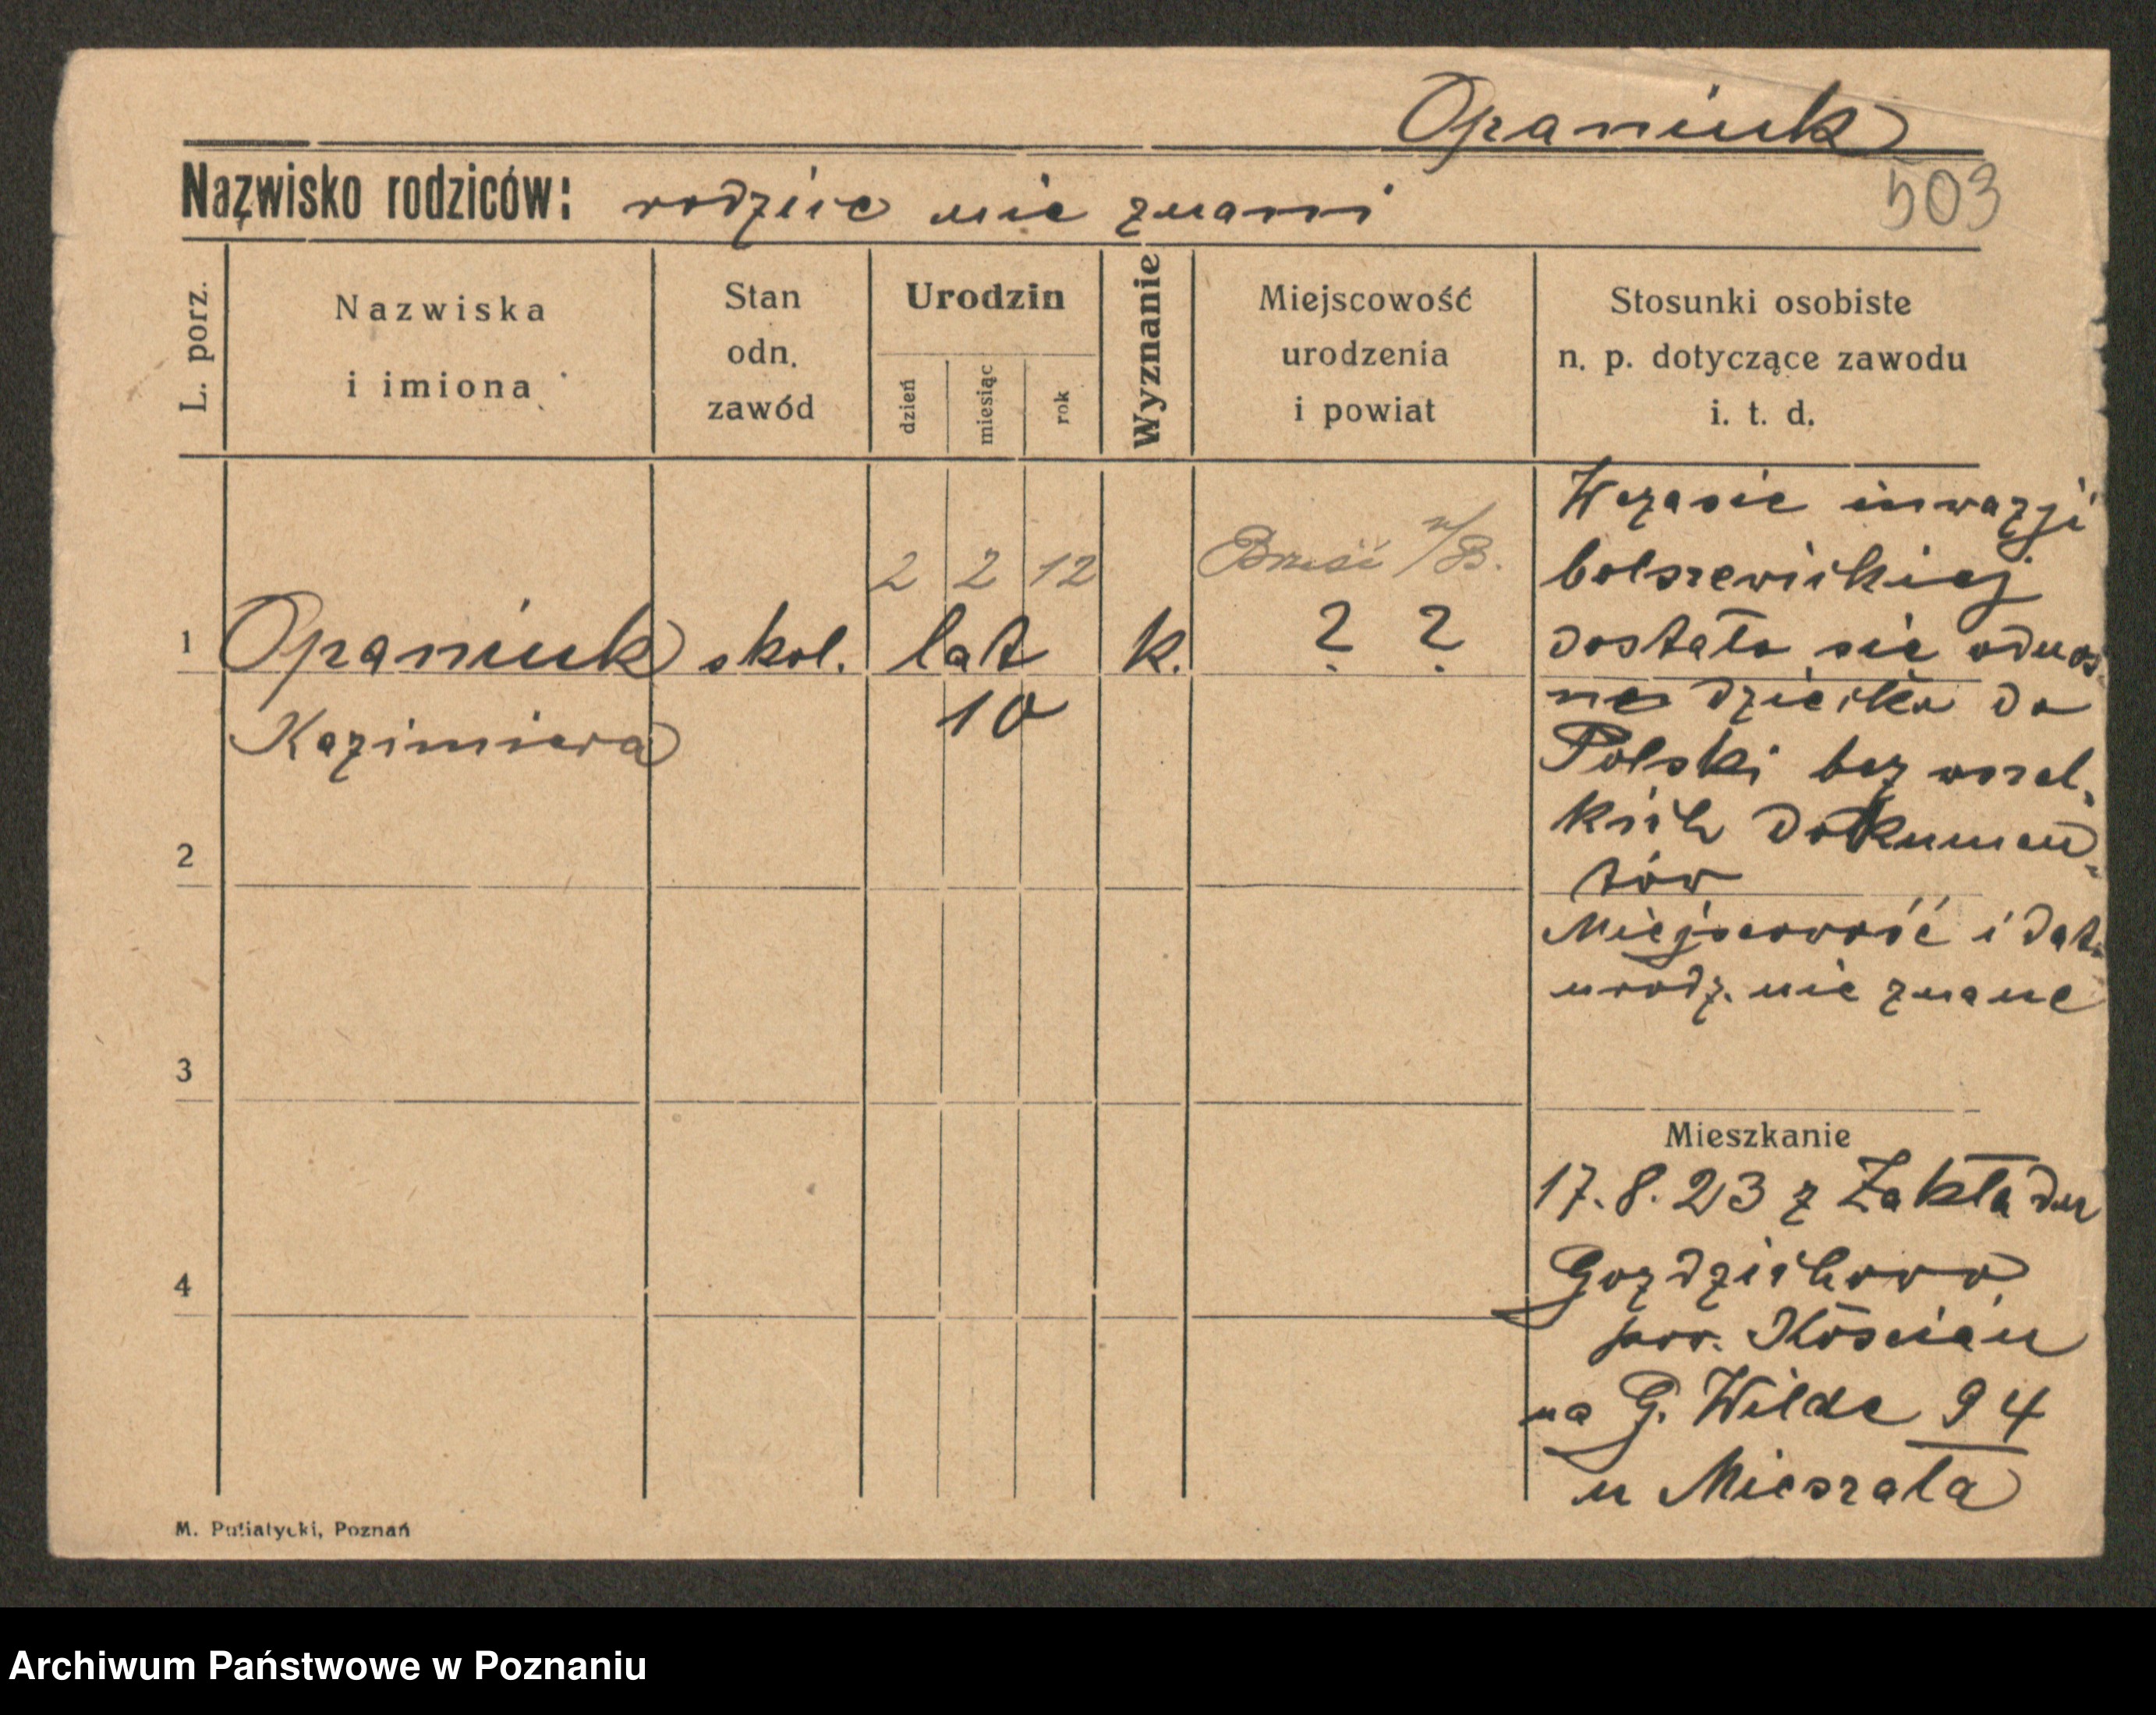 Opaniuk
503
Nazwisko rodziców: rodzice nie znani
L. porz.
Nazwiska
i imiona
Stan
odn.
zawód
Urodzin
dzień
miesiąc
rok
Wyznanie
Miejscowość
urodzenia
i powiat
Stosunki osobiste
n. p. dotyczące zawodu
i. t. d.
2 2 12 Brześć n/B.
1 Opaniuk skol. lat k. ? ?
Kazimiera 10
2
3
4
Wczasie inwazji
bolszewickiej
dostała się odnoś-
ne dziecko do
Polski bez wszel-
kich dokumen-
tów
Miejscowość i dat.
urodz. nie znane
Mieszkanie
17.8.23 z Zakładu
Gozdzichowo
pow. Kościan
na G. Wilde 94
u Mieszała
M. Putiatycki, Poznań
Archiwum Państwowe w Poznaniu